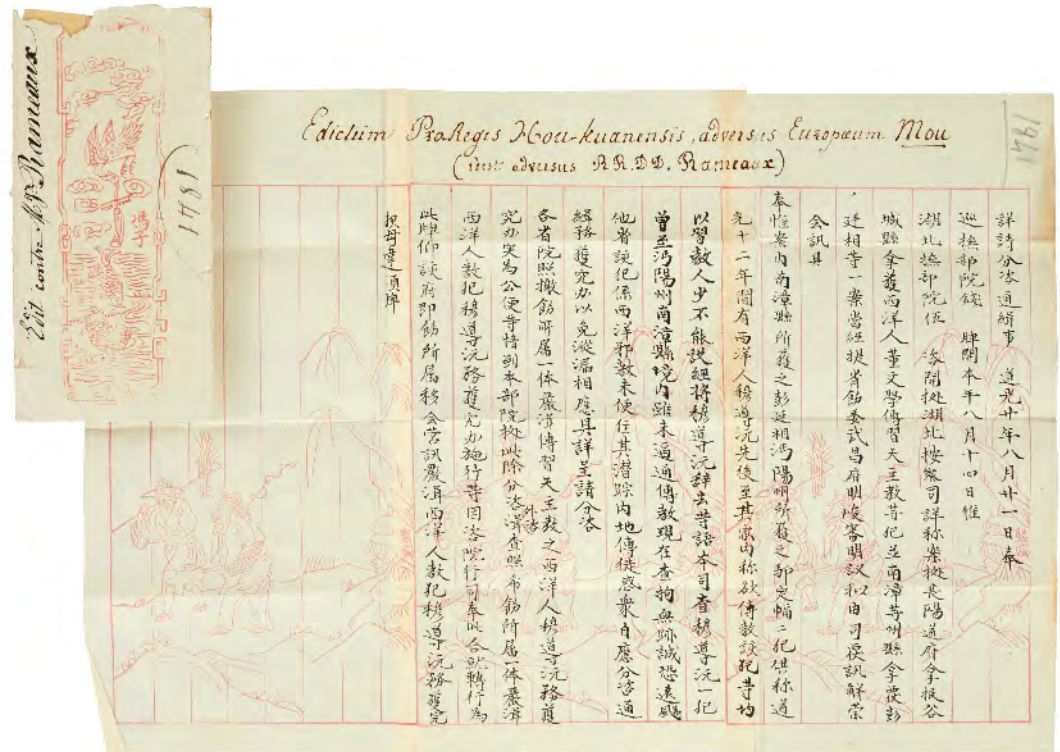 Edit contre Mr. Rameaux
1781
馮字
Edictum ProRegis Hou-kuanensis, adversus Europæum Mou
(inst adversus RR.DD. Rameaux)
1781
詳請分咨通緝事 道光廿年八月廿一日奉
巡撫部院錢 牌開本年八月十四日准
湖北撫部院伍 咨開据湖北按察司詳称案据襄陽道府拿报谷
城縣拿獲西洋人董文學傳習天主教等犯並南漳等州縣拿獲彭
廷相等一案當經提省飭委武昌府明峻審明議擬由司覆訊解蒙
会訊具
奉惟案內南漳縣所獲之彭廷相沔陽州所獲之鄢定幅二犯供称道
光十二年間有西洋人穆導沅先後至其家內称欲傳教該犯等均
以習教人少不能誦經將穆導沅辞去等語本司查穆導沅一犯
曾至沔陽州南漳縣境內雖未逼通傳教現在查拘無跡誠恐遠颺
他省該犯係西洋邪教未便任其潛踪內地傳徒惑衆自應分咨通
緝務獲究办以免漏縱相應具詳呈請分咨
各省院照撤飭所属一体嚴渭傳習天主教之西洋人穆導沅務獲
究办实為公便等情到本部院據此除分咨外咨渭查照希飭所属一体嚴渭
西洋人教犯穆導沅務獲究办施行等因咨院行司奉此合就轉行為
此牌仰該府即飭所属移会营訊嚴渭西洋人教犯穆導沅務獲究
报毋違須牌